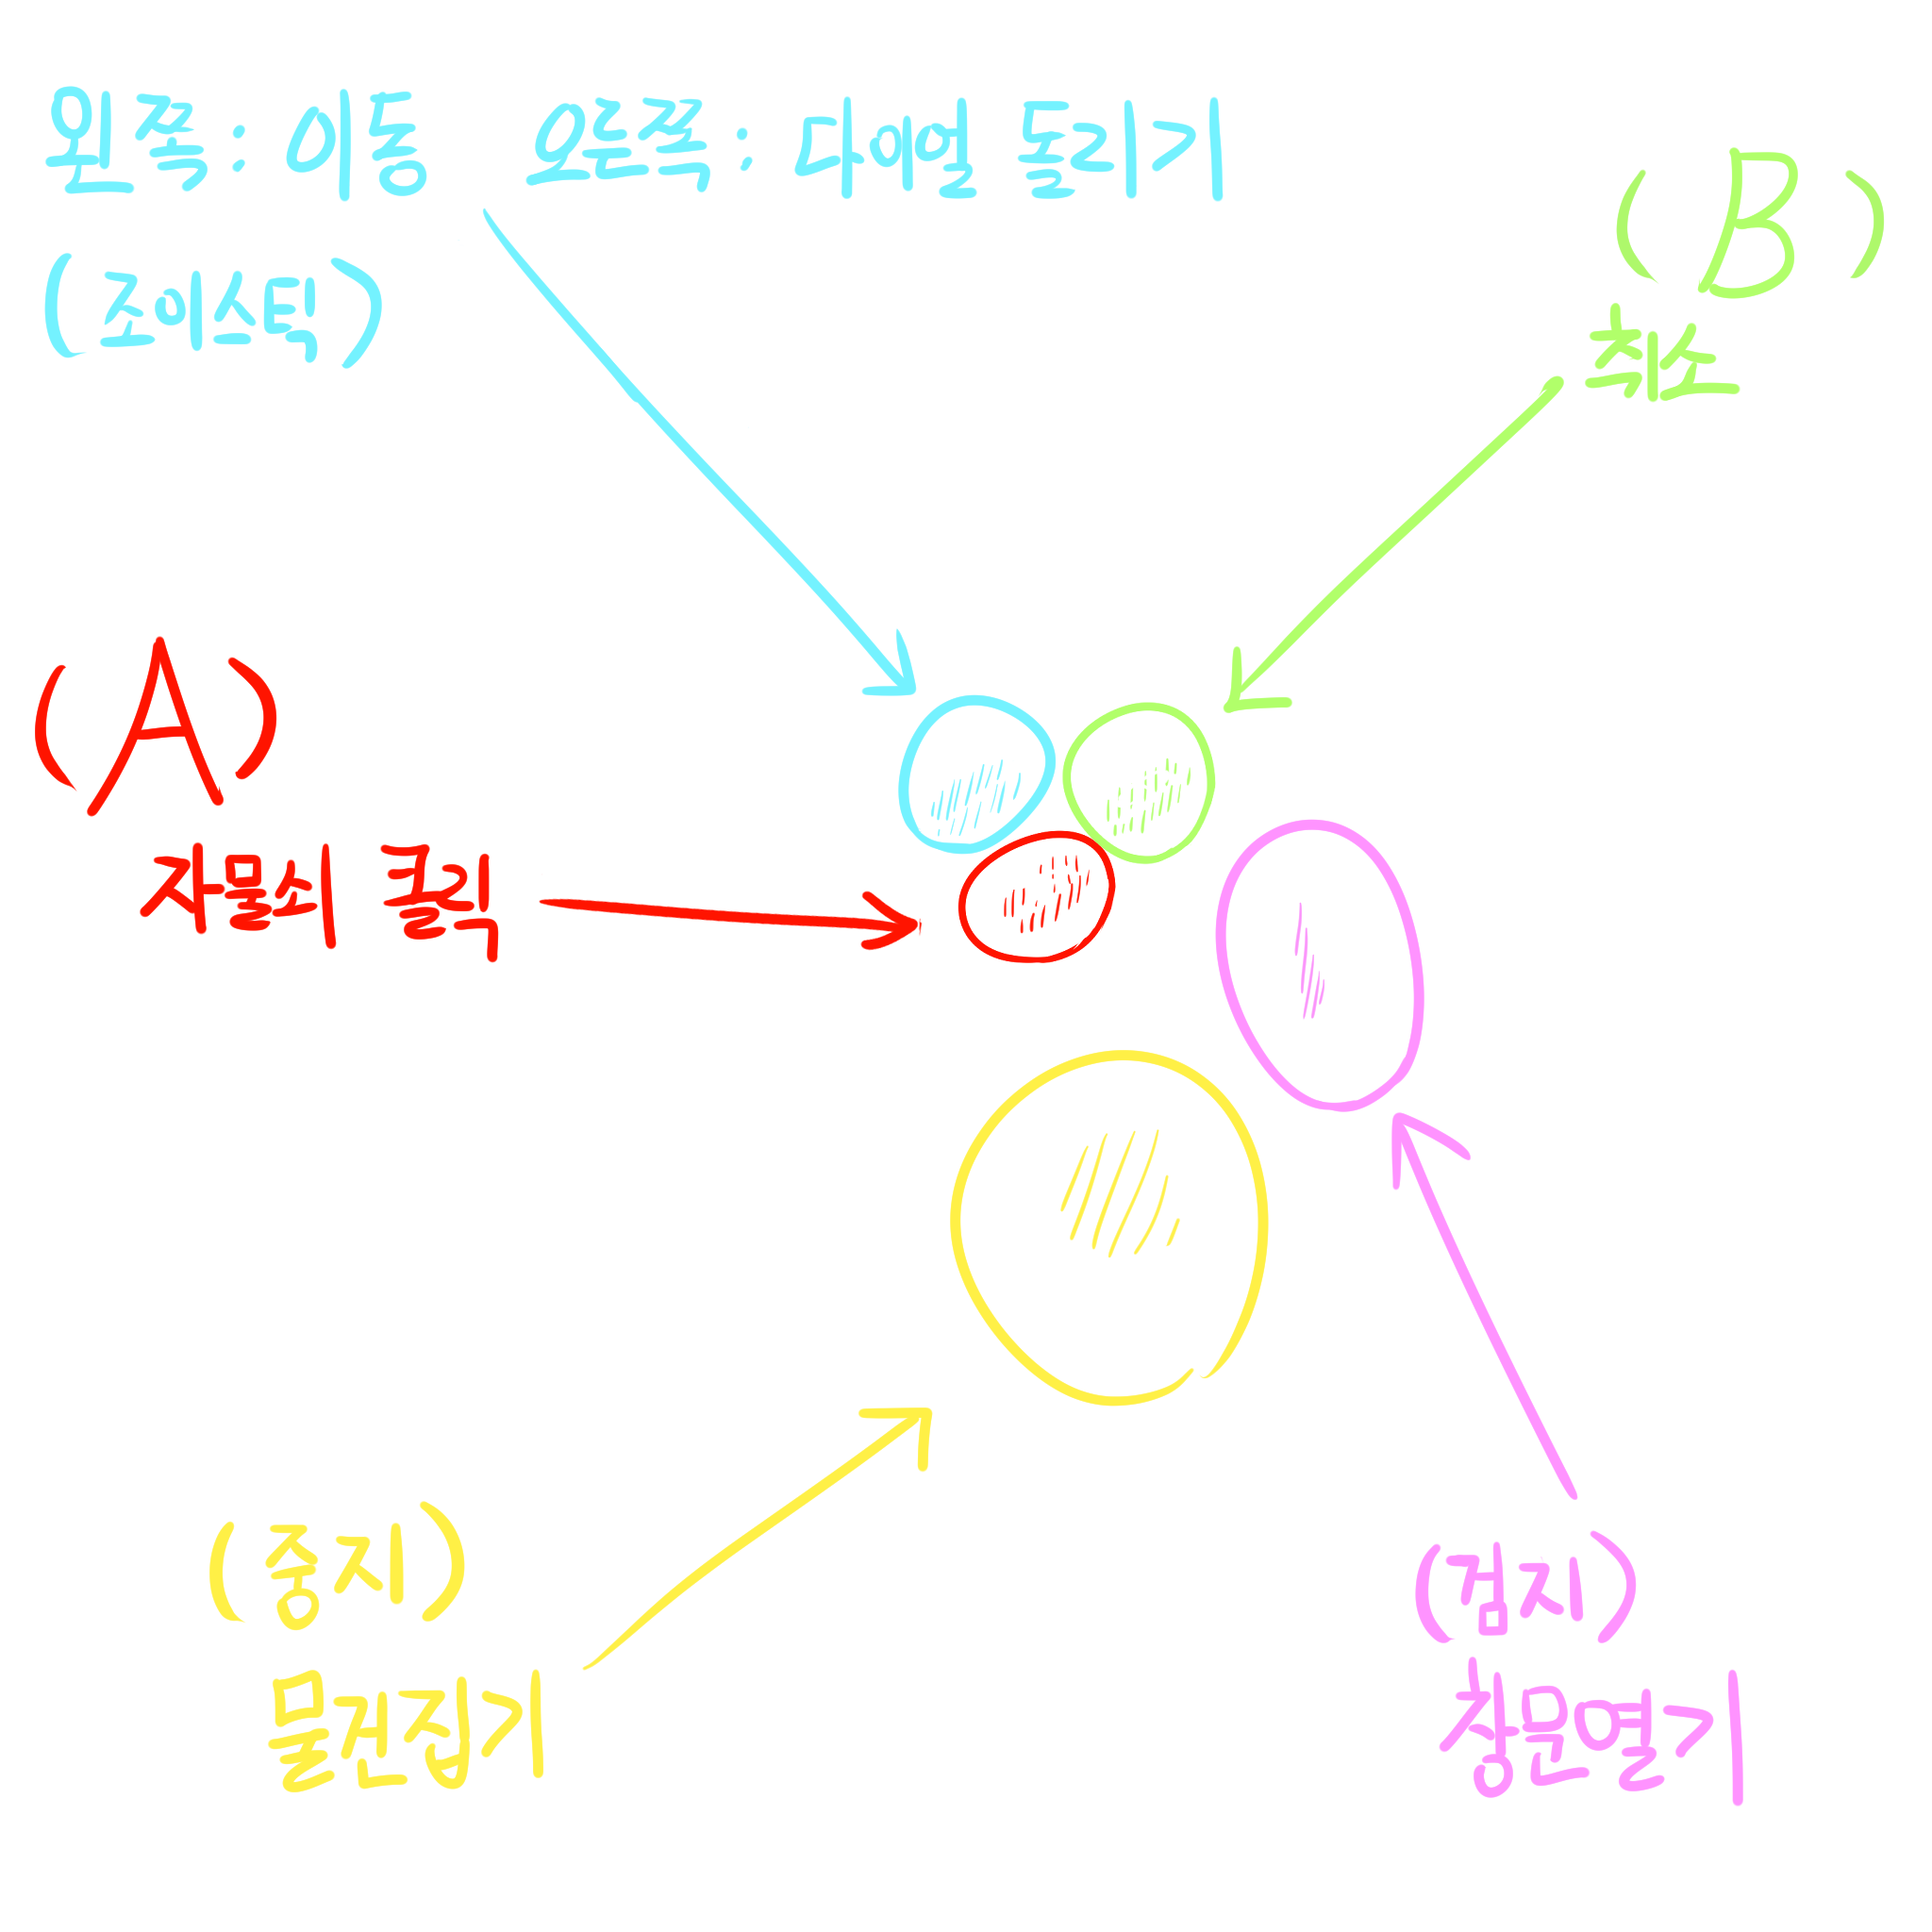 왼쪽: 이동 오른쪽: 시야변돌리기
(조이스틱)
(B)
취소
(A)
잠물쇠 클릭
(중지)
물건잡기
(검지)
창문열기